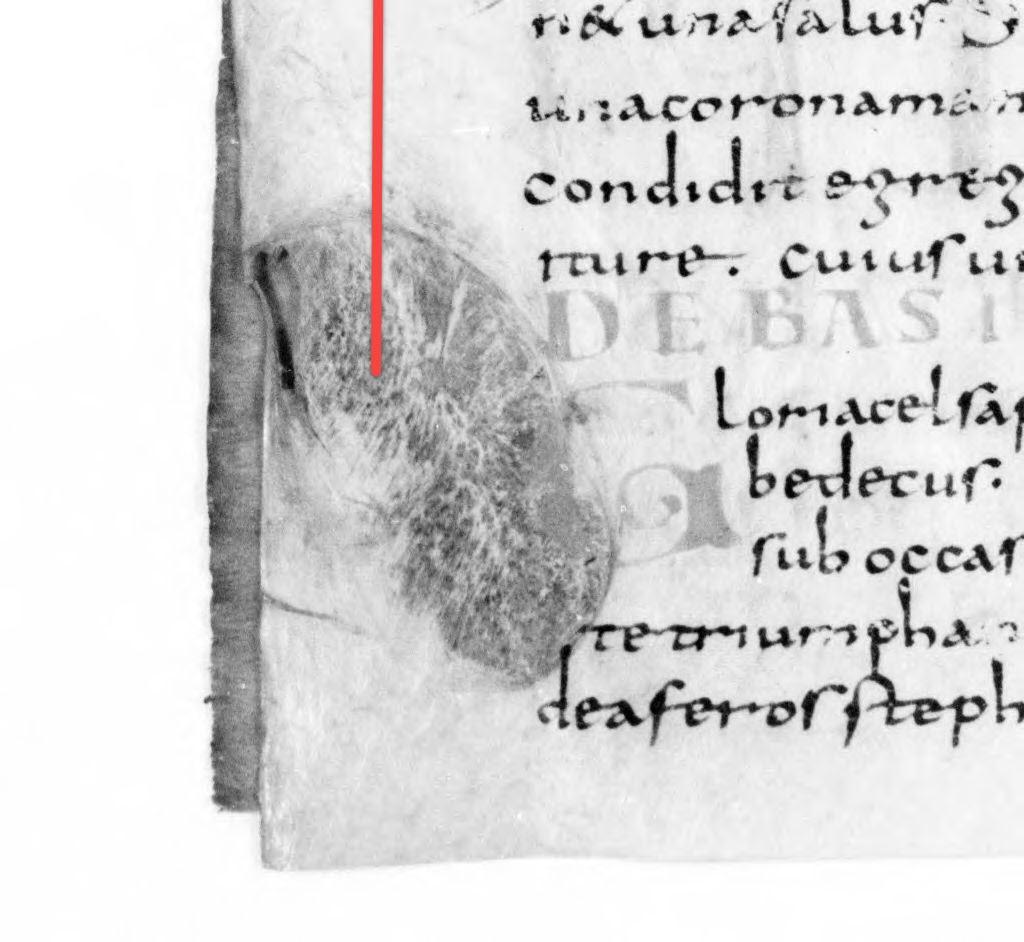 n& una salus.
una coronam
condidit egreg
rture. cuius u
DE BAS I
G loria celsa
be decus.
sub occas
te triumpha
dea feros steph